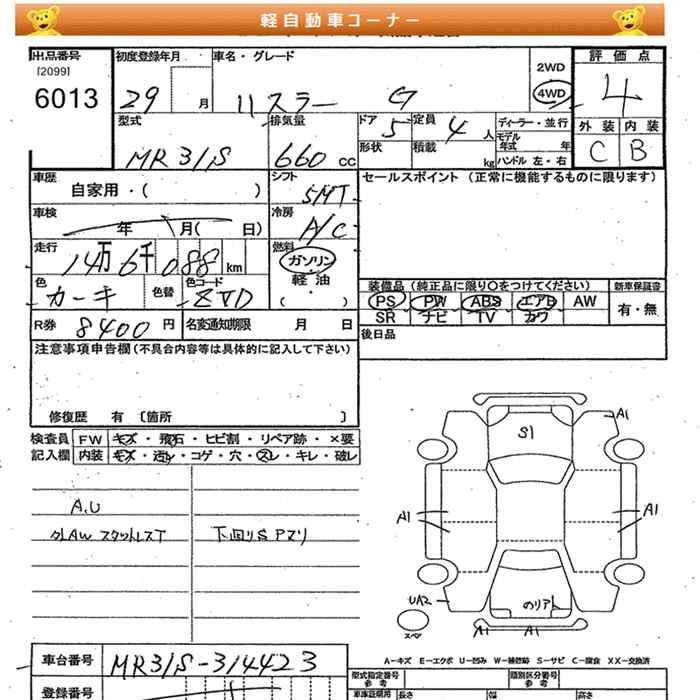 軽自動車コーナー
出品番号
[2099]
6013
初度登録年月
29 月
車名・グレード
ハスラー G
2WD
4WD
評価点
4
外装 内装
C B
型式
MR31S
排気量
660 cc
ドア 5
定員 4 人
形状
積載 kg
ディーラー・並行
モデル年式 年
ハンドル 左・右
車歴
自家用・( )
シフト
5MT
セールスポイント (正常に機能するものに限ります)
車検
年 月( 日)
冷房
A/C
走行
14万6千088 km
燃料
ガソリン
軽油
( )
色
カーキ
色替
色コード
ZVD
装備品 (純正品に限り〇をつけてください)
PS PW ABS エアB AW
SR ナビ TV カワ
新車保証書
有・無
R券 8400 円
名変通知期限 月 日
後日品
注意事項申告欄(不具合内容等は具体的に記入して下さい)
修復歴 有 〔箇所 〕
検査員 FW キズ・飛石・ヒビ割・リペア跡・×要
記入欄 内装 キズ・汚レ・コゲ・穴・スレ・キレ・破レ
A,U
外AW スタットレスT
下回りS Pマリ
A1
S1
A1
A1
UA2
のリアト
スペア
A1
A1
A−キズ E−エクボ U−凹み W−補修跡 S−サビ C−腐食 XX−交換済
車台番号 MR31S-314423
登録番号
型式指定番号
参考
類別区分番号
参考
車庫証明用
長さ
幅
高さ